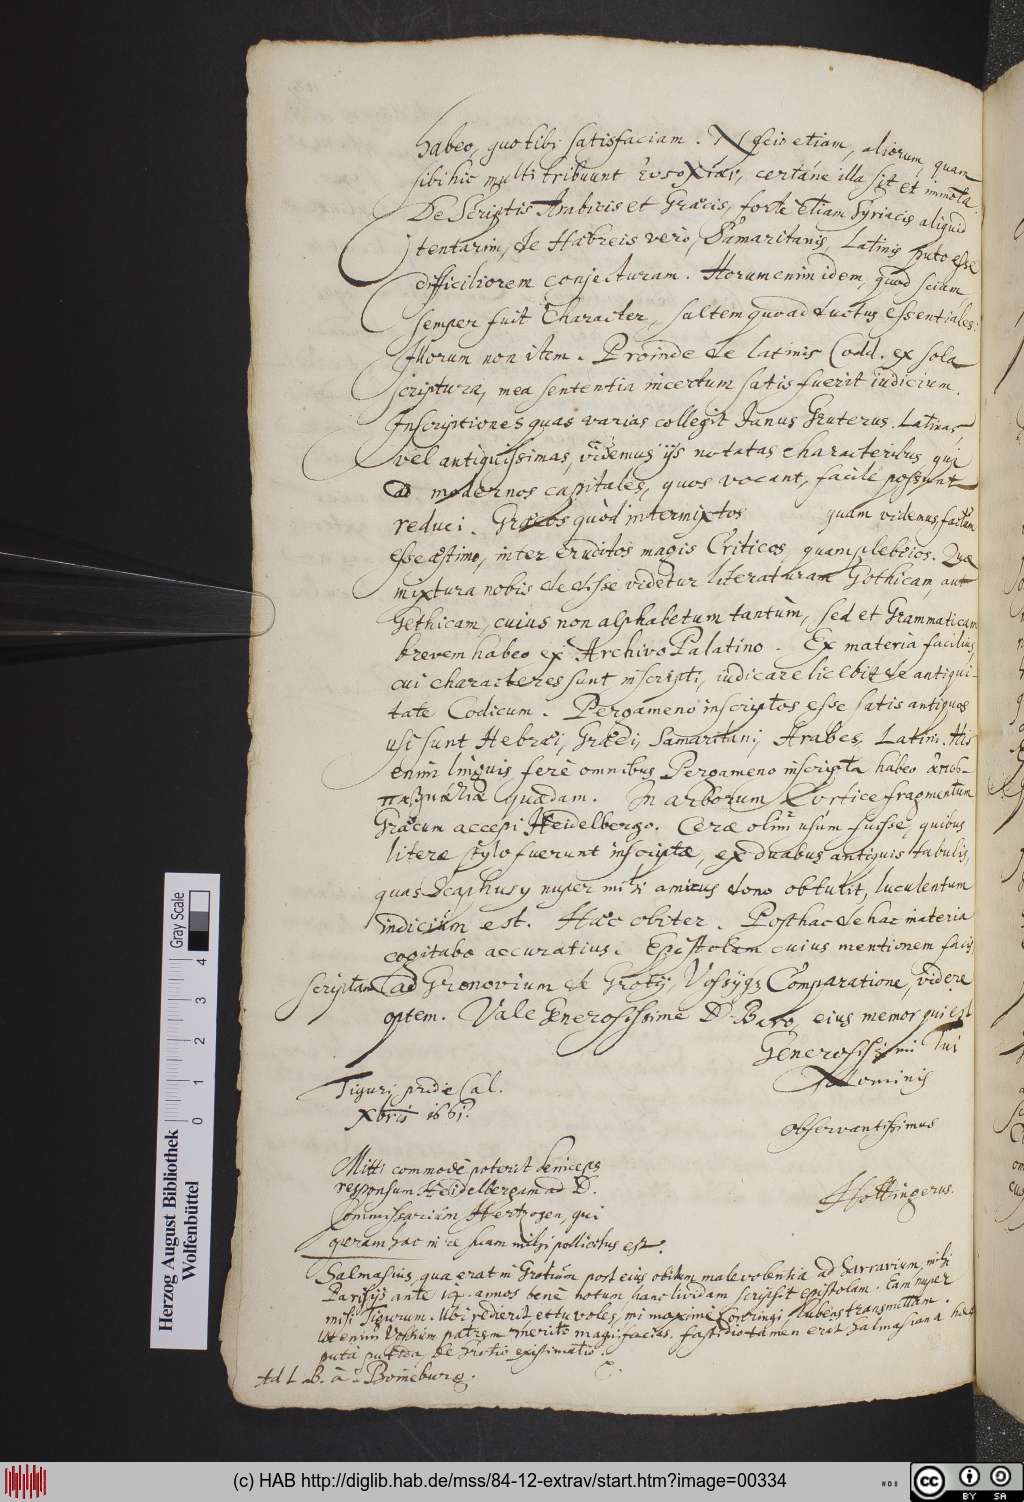 habeo, quo tibi satisfaciam. N scio etiam, aliorum, quam
sibi hic multi tribuunt certáne illa sit et immota.
De Scriptis Arabicis et Græcis, forte etiam Syriacis aliquid
tentarim, de Hebræis verò, Samaritanis, Latinis puto esse
difficiliorem conjecturam. Horum enim idem, quod sciam
semper fuit Character, saltem quoad ductus essentiales:
Illorum non item. Proinde de latinis Codd. ex sola
scriptura, mea sententia incertum satis fuerit iudicium.
Inscriptiones quas varias collegit Janus Gruterus. Latinas,
vel antiquissimas, videmus ijs notatas characteribus, qui
ad modernos capitales, quos vocant, facilè possunt
reduci. Græcos quòd intermixtos quam videmus, factum
esse æstimo, inter eruditos magis Criticos, quam plebeios. Quæ
mixtura nobis dedisse videtur literaturam Gothicam, aut
Gethicam, cuius non alphabetum tantùm, sed et Grammaticam
brevem habeo ex Archivo Palatino. Ex materia facilius,
cui characteres sunt inscripti, iudicare licebit de antiqui-
tate Codicum. Pergameno inscriptos esse satis antiquos
usi sunt Hebræi, Græci, Samaritani, Arabes, Latini. His
enim linguis ferè omnibus Pergameno inscripta habeo
quædam. In arborum Cortice fragmentum
Græcum accepi Heidelbergo. Ceræ olim usum fuisse, quibus
literæ stylo fuerunt inscriptæ, ex duabus antiquis tabulis,
quas Scaphusy nuper mihi amicus dono obtulit, luculentum
indicium est. Hæc obiter. Posthac de hac materia
cogitabo accuratius. Epistolam cuius mentionem facis,
scriptam ad Gronovium de Grotij, Vossijq; Comparatione, videre
optem. Vale Generosissime D. Baro, eius memor qui est
Generosissimi Tui
Nominis
Tiguri pridie Cal.
Xbris 1661.
observantissimus
Mitti commodè poterit deinceps
responsum Heidelbergam ad D.
Hottingerus.
Commissarium Hertzogen, qui
operam hac in re suam mihi pollicitus est.
Salmasius, qua erat in Grotium post eius obitum malevolentia ad Sarravium, mihi
Parisijs ante 14. annos benè notum hanc lividam scripsit epistolam. Eam nuper
misi Tigurum. Ubi redierit et tu voles, mi maxime Conringi, lubens transmittam.
Ut enim Vossium patrem meritò magni facias, fastidio tamen erit Salmasiana hæc
puta putida de Grotio existimatio.
Ad L. B. à Boineburg.
Herzog August Bibliothek
Wolfenbüttel
0 1 2 3 4
Gray Scale
(c) HAB http://diglib.hab.de/mss/84-12-extrav/start.htm?image=00334
cc BY SA